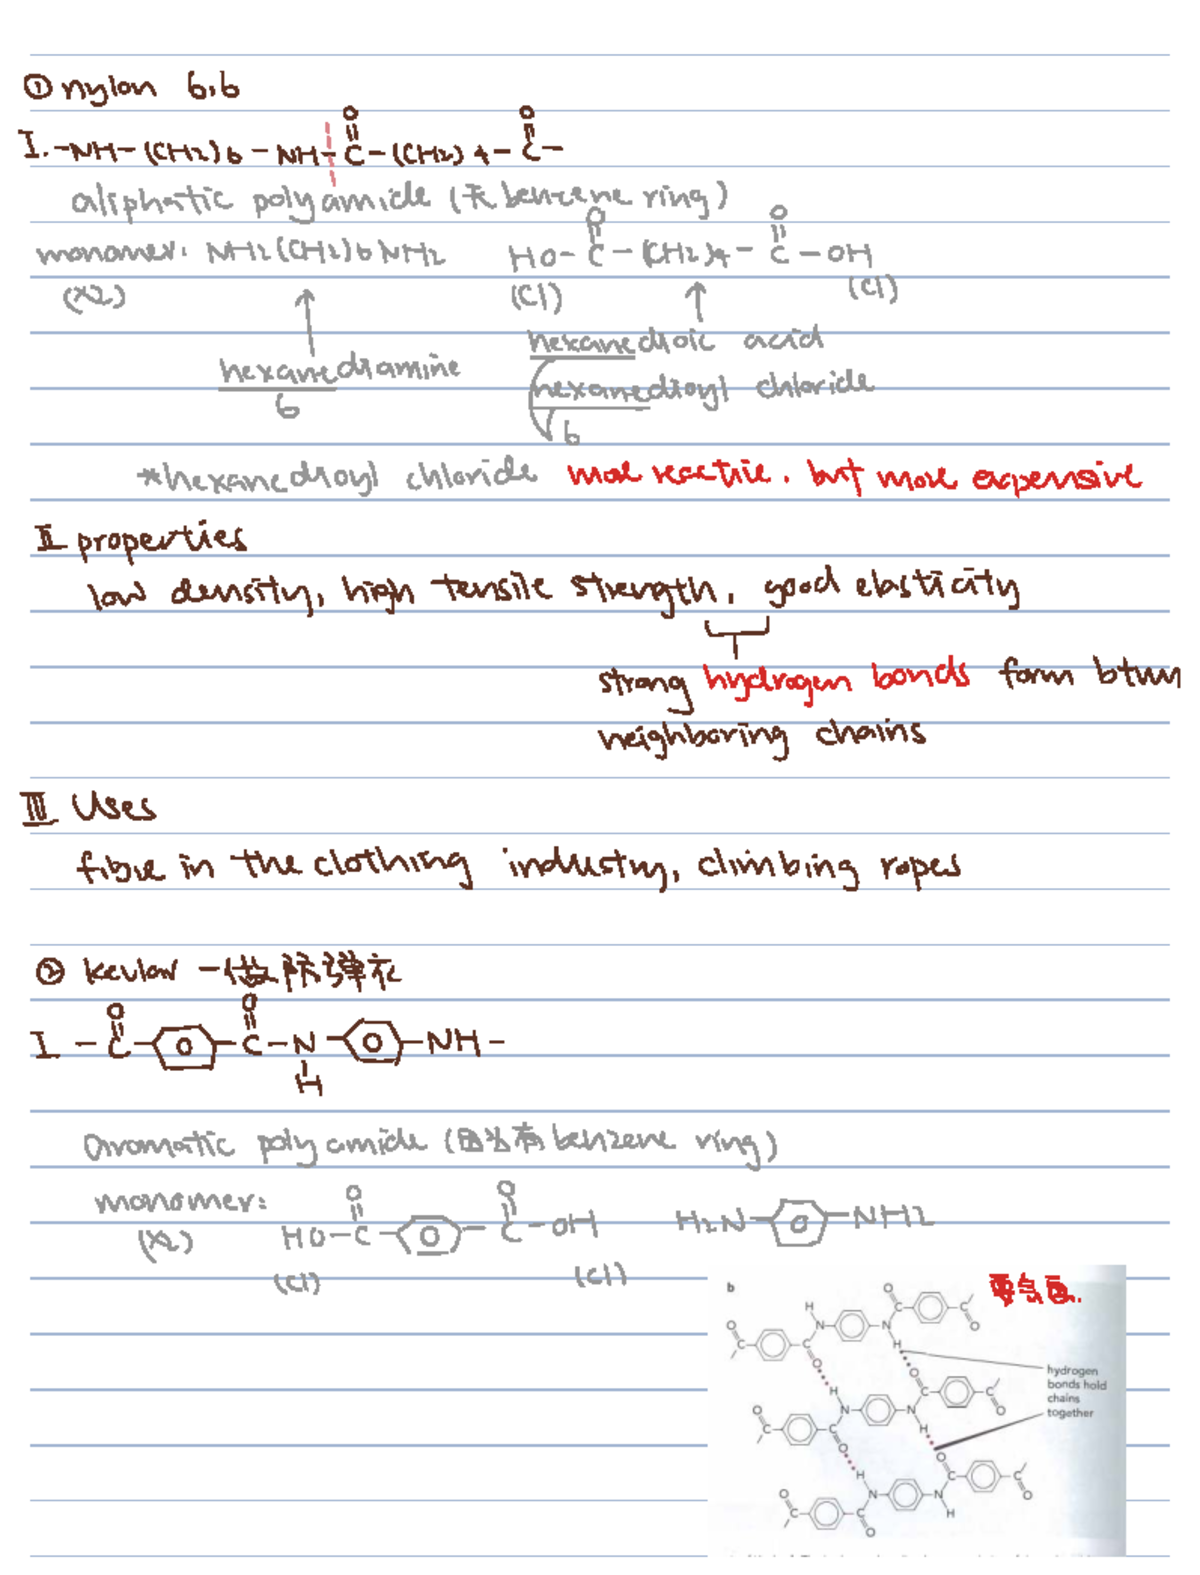 ① nylon 6,6
O O
I. -NH-(CH2)6-NH-C-(CH2)4-C-
aliphatic polyamide (无 benzene ring)
O O
monomer: NH2(CH2)6NH2 HO-C-(CH2)4-C-OH
(x2) (Cl) (Cl)
hexanedioic acid
hexanediamine hexanedioyl chloride
6 6
*hexanedioyl chloride more reactive, but more expensive
II properties
low density, high tensile strength, good elasticity
strong hydrogen bonds form btwn
neighboring chains
III Uses
fibre in the clothing industry, climbing ropes
② kevlar - 做防弹衣
O O
I -C-⌬-C-N-⌬-NH-
H
Aromatic polyamide (因为有 benzene ring)
O O
monomer: HO-C-⌬-C-OH H2N-⌬-NH2
(x2) (Cl) (Cl)
b 要会画.
hydrogen
bonds hold
chains
together